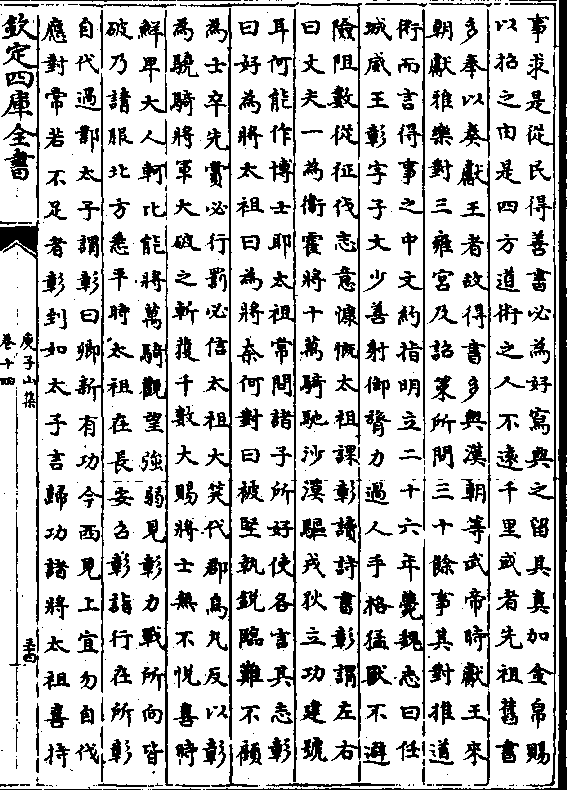 事求是從民得善書必為好寫與之留其真加金帛賜
以招之由是四方道術之人不遠千里或者先祖舊書
多奉以奏獻王者故得書多與漢朝等武帝時獻王來
朝獻雅樂對三雍宮及詔策所問三十餘事其對推道
術而言得事之中文約指明立二十六年薨魏志曰任
城威王彰字子文少善射御膂力過人手格猛獸不避
險阻數從征伐志意慷慨太祖課彰讀詩書彰謂左右
曰丈夫一為衛霍將十萬騎馳沙漠驅戎狄立功建號
耳何能作博士耶太祖常問諸子所好使各言其志彰
曰好為將太祖曰為將奈何對曰被堅執銳臨難不顧
為士卒先賞必行罰必信太祖大笑代郡烏丸反以彰
為驍騎將軍大破之斬獲千數大賜將士無不悅喜時
鮮卑大人軻比能將萬騎觀望強弱見彰力戰所向皆
破乃請服北方悉平時太祖在長安召彰詣行在所彰
自代過鄴太子謂彰曰卿新有功今西見上宜勿自伐
應對常若不足者彰到如太子言歸功諸將太祖喜持
欽定四庫全書
庾子山集
卷十四